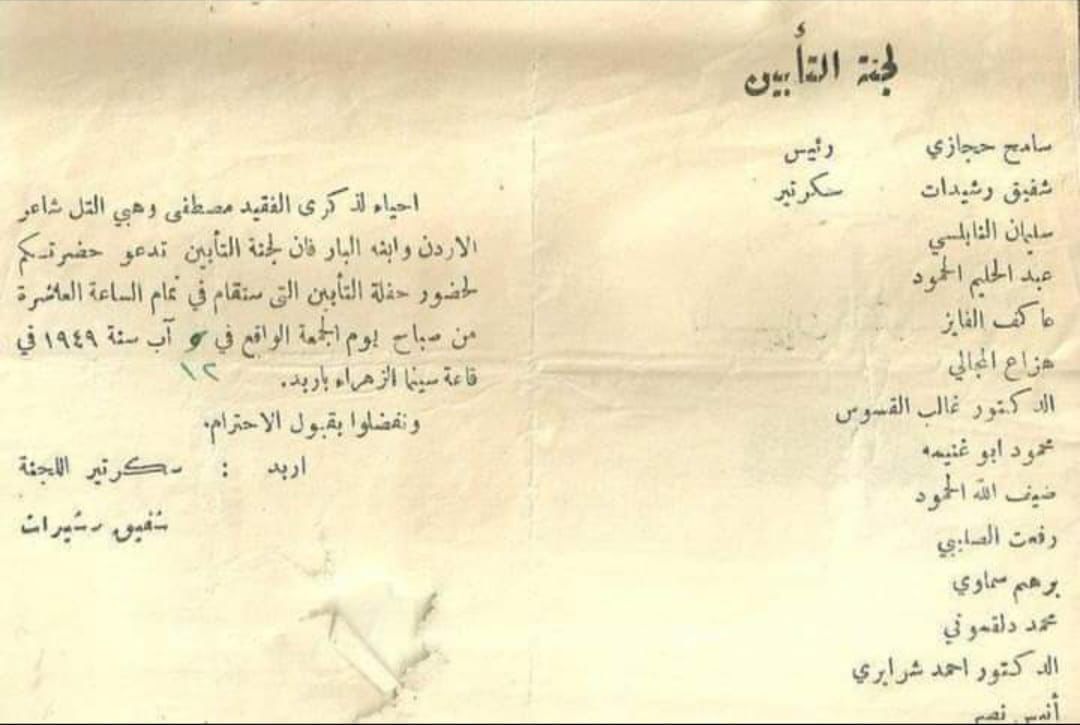 لجنة التأبين
سامح حجازي رئيس
شفيق رشيدات سكرتير
سليمان النابلسي
عبد الحليم الحمود
عاكف الفايز
هزاع المجالي
الدكتور غالب القسوس
محمود ابو غنيمه
ضيف الله الحمود
رفعت الصليبي
برهم سماوي
محمد دلقموني
الدكتور احمد شرايري
أنيس نصير
احياء لذكرى الفقيد مصطفى وهبي التل شاعر
الاردن وابنه البار فان لجنة التأبين تدعو حضرتكم
لحضور حفلة التأبين التي ستقام في تمام الساعة العاشرة
من صباح يوم الجمعة الواقع في ٥ آب سنة ١٩٤٩ في
١٢
قاعة سينما الزهراء باربد.
وتفضلوا بقبول الاحترام.
اربد : سكرتير اللجنة
شفيق رشيدات